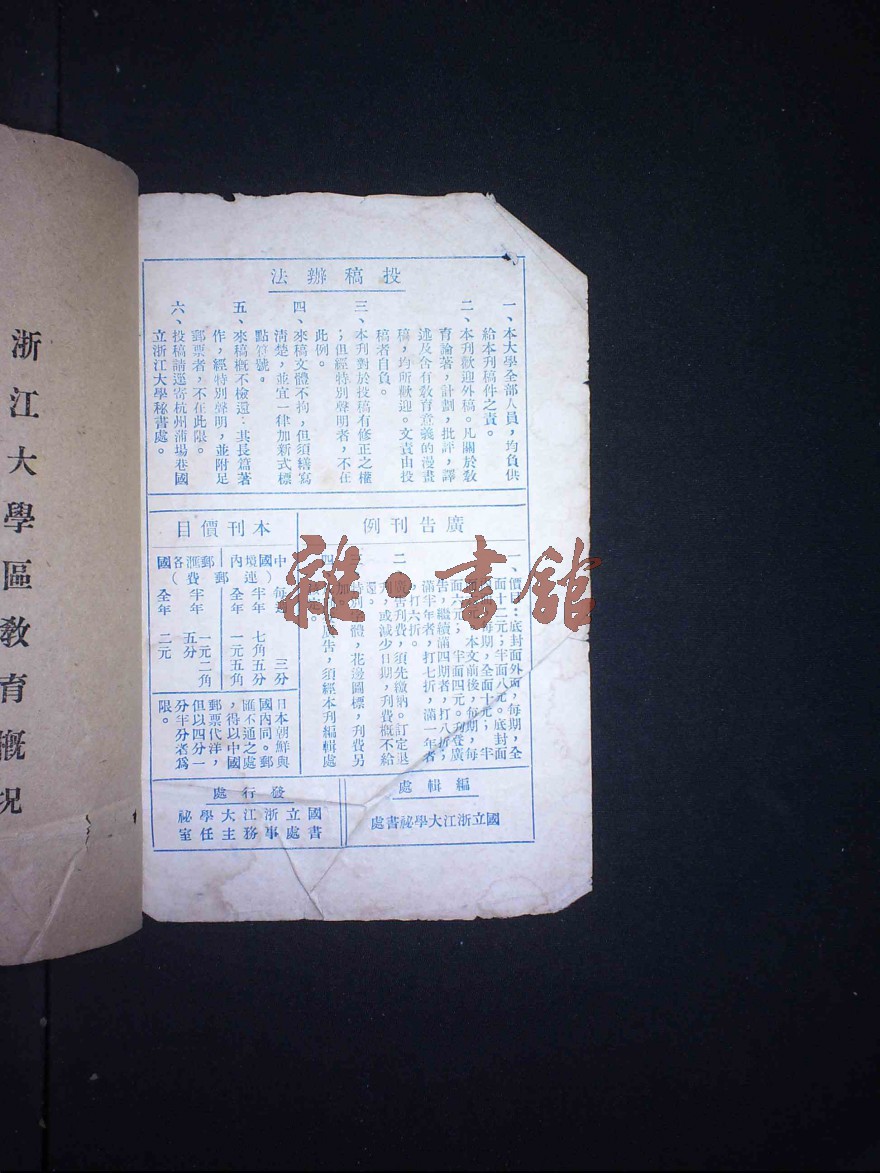 投稿辦法
一、本大學全部人員，均負供
給本刊稿件之責。
二、本刊歡迎外稿。凡關於教
育論著，計劃，批評，譯
述及含有教育意義的漫畫
稿，均所歡迎。文責由投
稿者自負。
三、本刊對於投稿有修正之權
；但經特別聲明者，不在
此例。
四、來稿文體不拘，但須繕寫
清楚，並宜一律加新式標
點符號。
五、來稿概不檢還；其長篇著
作，經特別聲明，並附足
郵票者，不在此限。
六、投稿請逕寄杭州蒲場巷國
立浙江大學秘書處。
廣告刊例
一、價目：底封面外面，每期，全
面十二元；半面八元。底封面
每期，全面十元；半
本文前後，每期，每
面六元；半面四元。刊登廣
告，繼續滿四期者，打八折，
滿半年者，打七折，滿一年者
，打六折。
二、廣告刊費，須先繳納。訂定退
刊，或減少日期，刊費概不給
還。
三、特別字體，花邊圖標，刊費另
加。
四、廣告，須經本刊編輯處
本刊價目
每 三分
中國境內（連郵）
半年 七角五分
全年 一元五角
郵匯各國（郵費）
半年 一元二角五分
全年 二元
日本朝鮮與
國內同。郵
匯不通之處
，得以中國
郵票代洋，
但以四分一
分半分者爲
限。
編輯處
國立浙江大學祕書處
發行處
國立浙江大學祕
書處事務主任室
浙江大學區教育概況
雜·書館